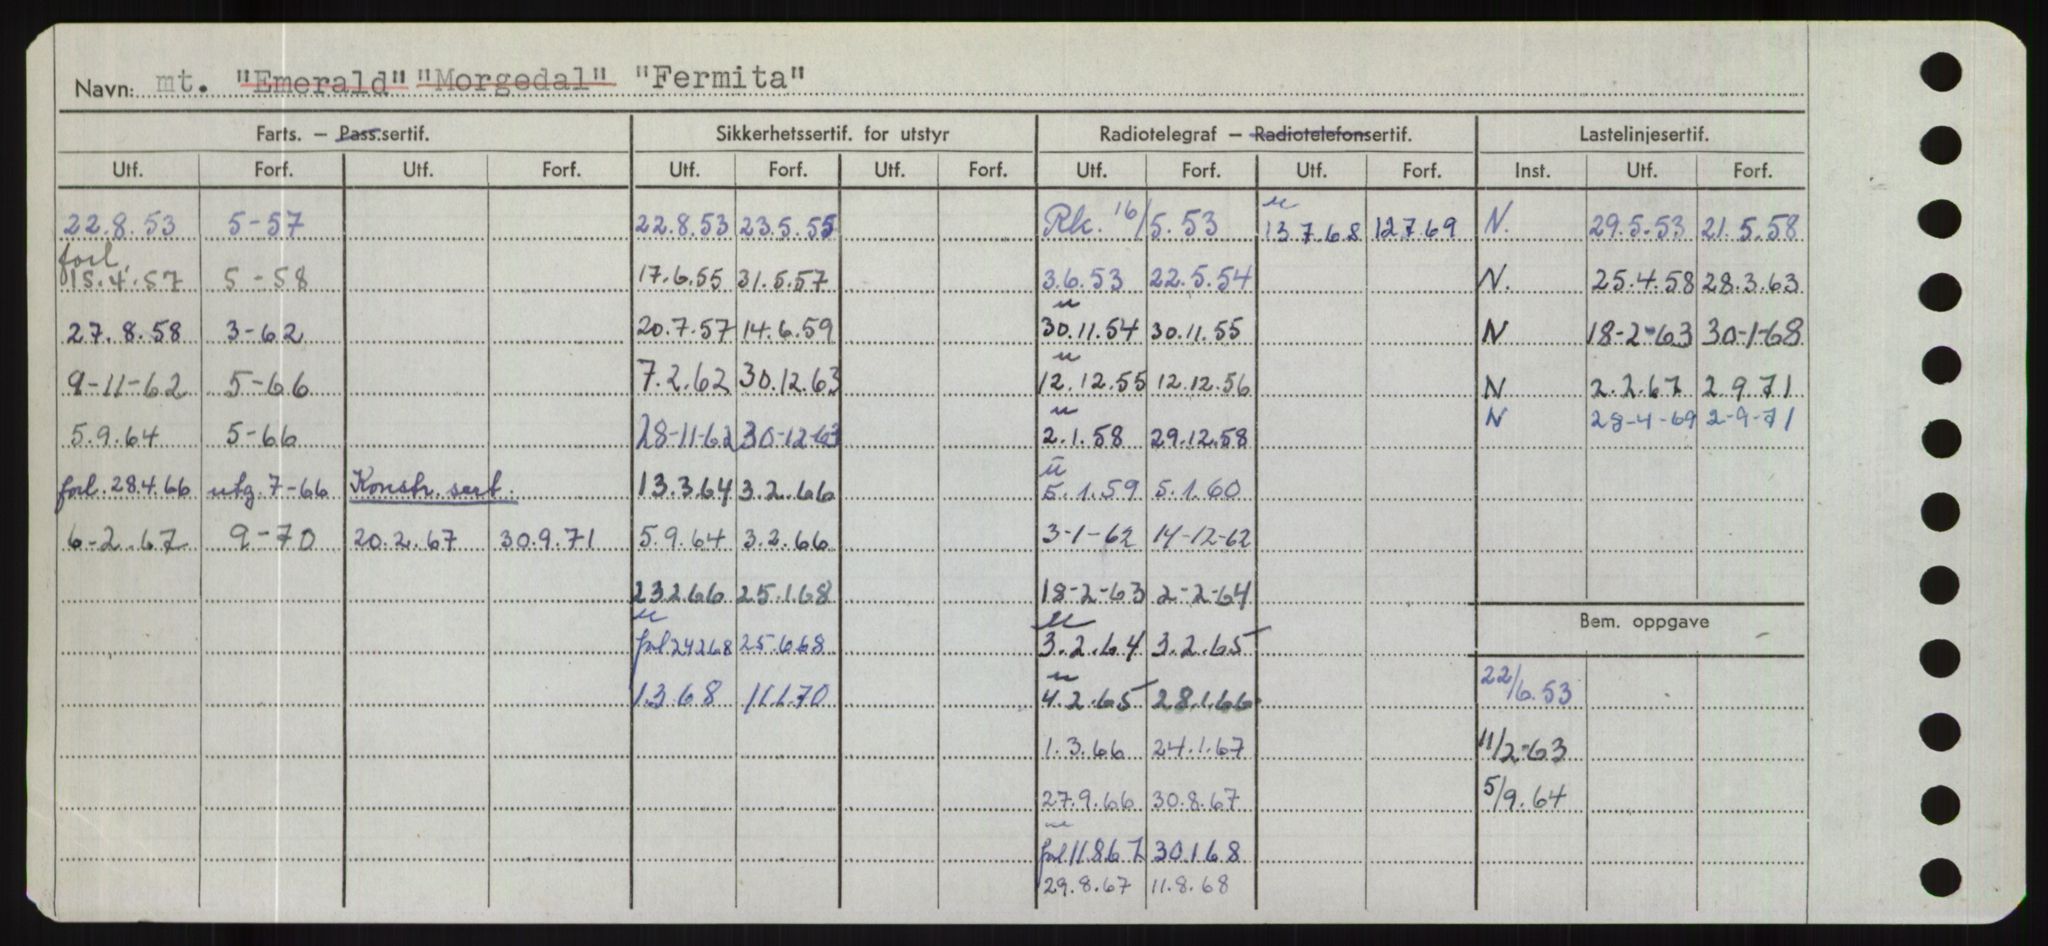 Navn: mt. "Emerald" "Morgedal" "Fermita"
Farts. — Pass.sertif. Sikkerhetssertif. for utstyr Radiotelegraf — Radiotelefonsertif. Lastelinjesertif.
Utf. Forf. Utf. Forf. Utf. Forf. Utf. Forf. Utf. Forf. Utf. Forf. Inst. Utf. Forf.
22.8.53 5-57 22.8.53 23.5.55 Rk. 16/5.53 u 13 7 68 12 7 69 N. 29.5.53 21.5.58
forl.
15.4.57 5-58 17.6.55 31.5.57 3.6.53 22.5.54 N. 25.4.58 28.3.63
u
27.8.58 3-62 20.7.57 14.6.59 30.11.54 30.11.55 N 18-2-63 30-1-68
u
9-11-62 5-66 7.2.62 30.12.63 12.12.55 12.12.56 N 2.2.67 2 9 71
u
N 28-4-69 2-9-71
5.9.64 5-66 28-11-62 30-12-63 2.1.58 29.12.58
u
forl. 28.4.66 utg. 7-66 Konstr. sert. 13.3.64 3.2.66 5.1.59 5.1.60
6-2.67 9-70 20.2.67 30.9.71 5.9.64 3.2.66 3-1-62 14-12-62
23 2 66 25.1.68 18-2-63 2-2-64
u u
forl 24 2 68 25.6.68 3.2.64 3.2.65
u
1.3 68 11.1.70 4.2.65 28.1.66 22/6.53
1.3.66 24.1.67 11/2-63
27.9.66 30.8.67 5/9.64
u
forl 11 8 67 30 1 68
29.8.67 11.8.68
Bem. oppgave